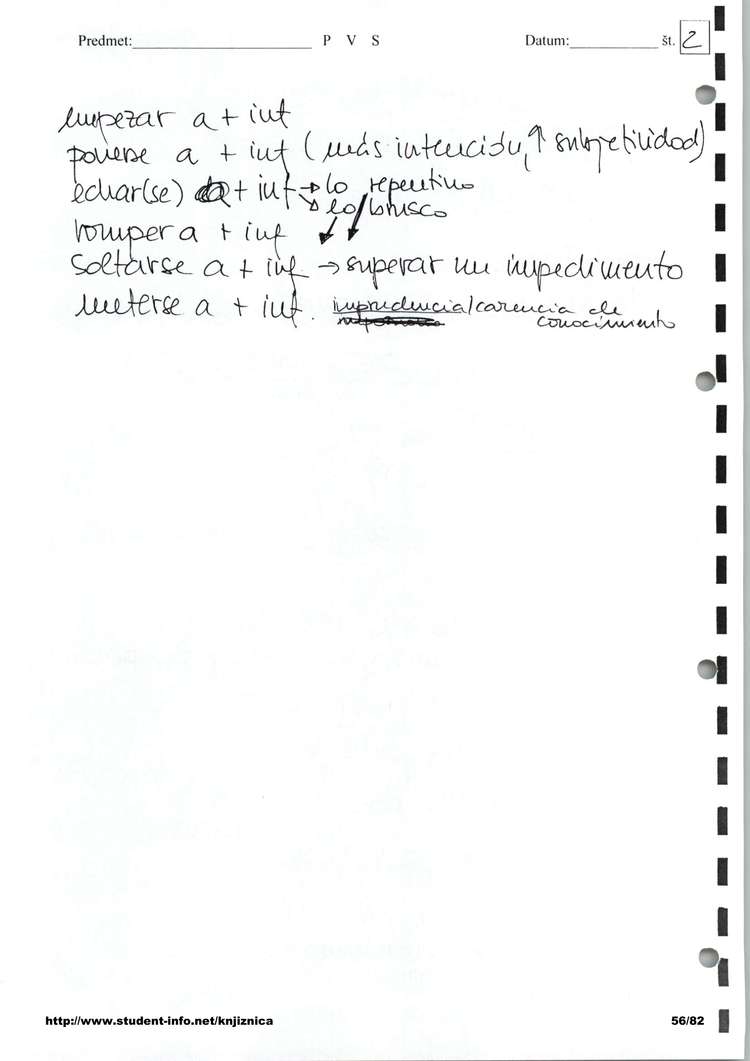 Predmet: P V S Datum: št. 2
empezar a + inf
ponerse a + inf (más intención, ↑ subjetividad)
echar(se) a + inf → lo repentino
→ lo brusco
romper a + inf
soltarse a + inf → superar un impedimento
meterse a + inf. imprudencia/carencia de
conocimiento
http://www.student-info.net/knjiznica 56/82